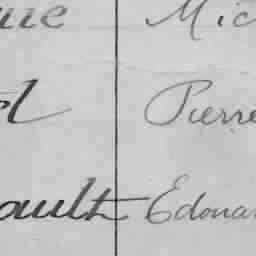 ue Mic
el Pierre
ault Edouar